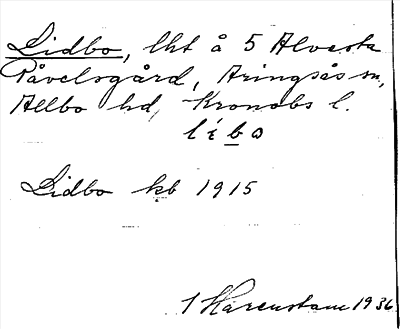 Lidbo, lht å 5 Alvesta
Påvelsgård, Aringsås sn,
Allbo hd, Kronobs l.
líbo
Lidbo kb 1915
1 Harenstam 1936